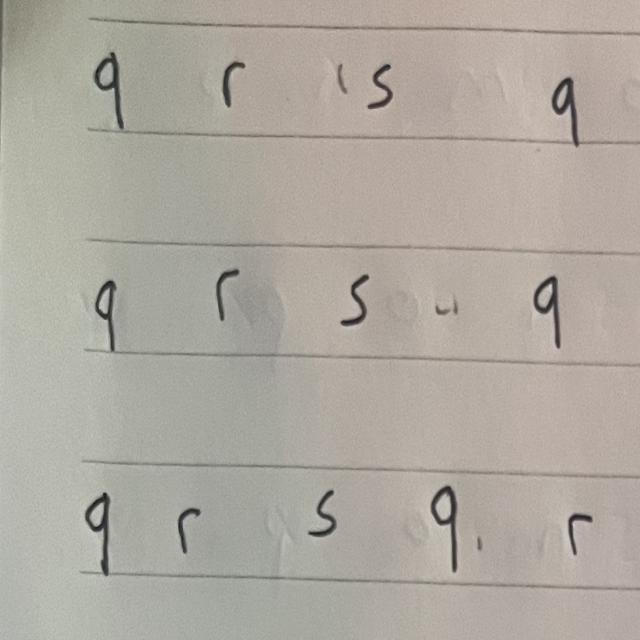 q r s q
q r s q
q r s q r